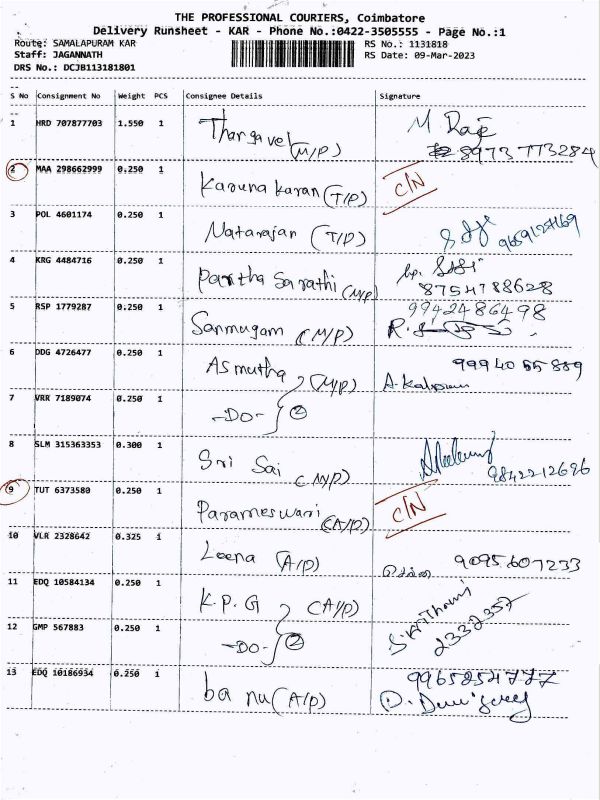 THE PROFESSIONAL COURIERS, Coimbatore
Delivery Runsheet - KAR - Phone No.:0422-3505555 - Page No.:1
Route: SAMALAPURAM KAR RS No.: 1131818
Staff: JAGANNATH RS Date: 09-Mar-2023
DRS No.: DCJB113181801
S No Consignment No Weight PCS Consignee Details Signature
1 HRD 707877703 1.550 1 Thangavel (M/P) M Raje
8973773284
2 MAA 298662999 0.250 1 Karunakaran (T/P) C/N
3 POL 4601174 0.250 1 Natarajan (T/P) 9659127169
4 KRG 4484716 0.250 1 Partha Sarathi (M/P)
8754788628
5 RSP 1779287 0.250 1 Sanmugam (M/P) 9942486498
6 DDG 4726477 0.250 1 Asmutha (M/P) 9994055889
7 VRR 7189074 0.250 1 -DO- 2
8 SLM 315363353 0.300 1 Sri Sai (M/P) 9842212696
9 TUT 6373580 0.250 1 Parameswari (A/P) C/N
10 VLR 2328642 0.325 1 Leena (A/P) 9095607233
11 EDQ 10584134 0.250 1 K.P.G (A/P)
12 GMP 567883 0.250 1 -DO- 2 2332357
13 EDQ 10186934 0.250 1 banu (A/P) 9965254777